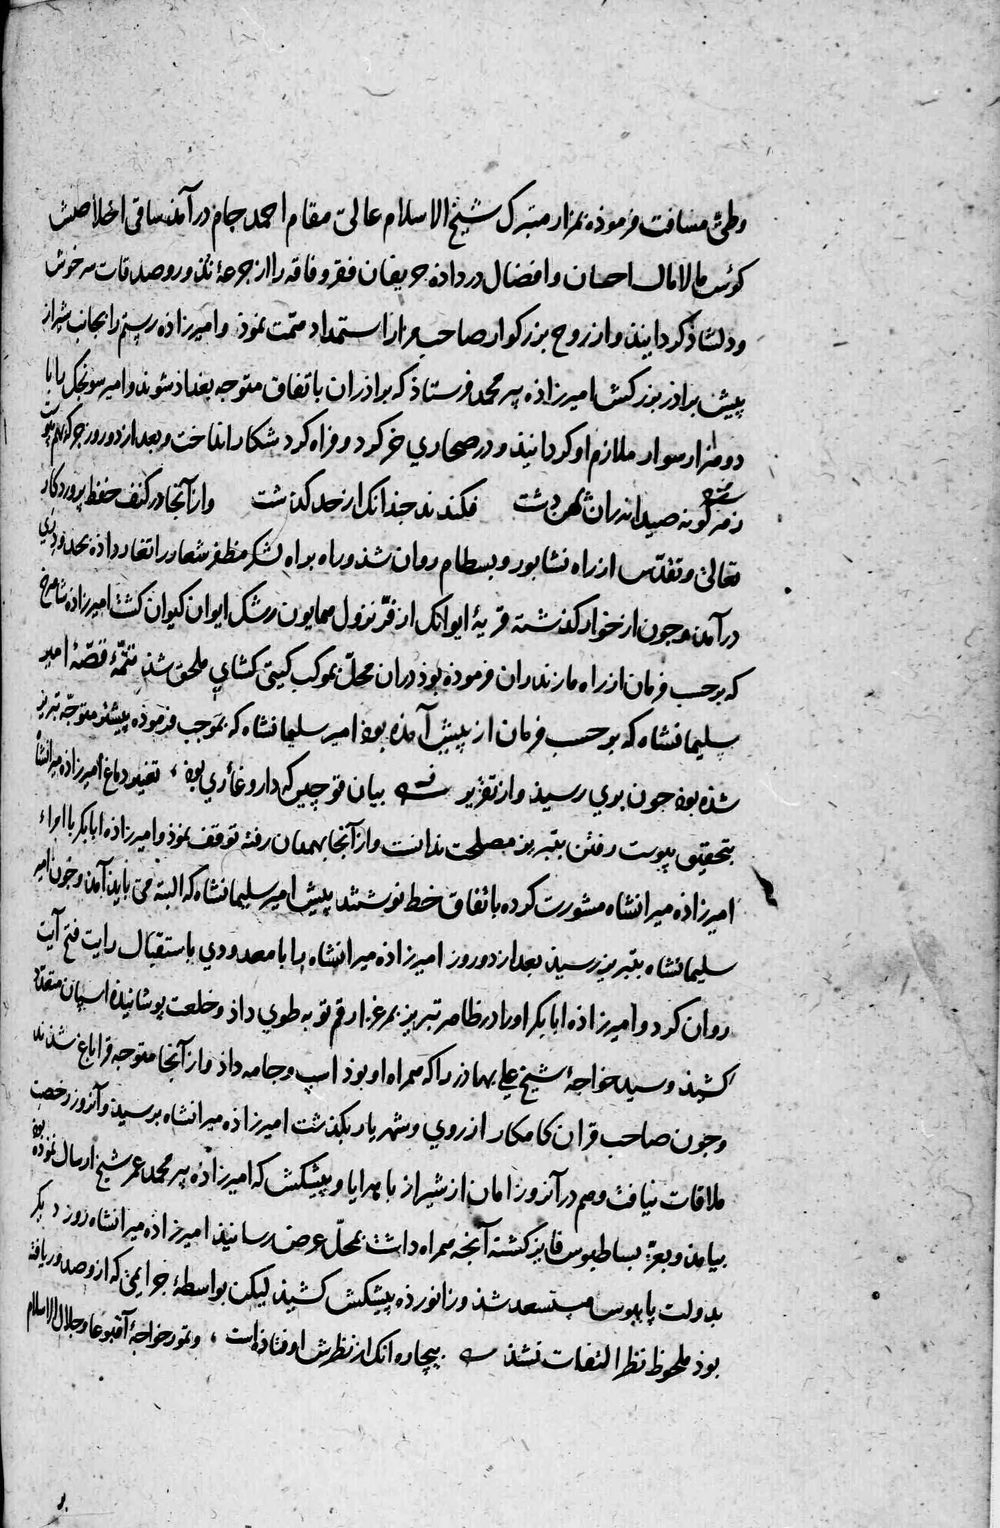 وطی مسافت فرموذه بمزار متبرک شیخ الاسلام عالی مقام احمد جام درآمذ ساقی اخلاصش
کوس مالامال احسان وافضال در داذه حریفان فقر وفاقه را از جرعهٔ نذور وصدقات سرخوش
ودلشاذ کردانیذ واز روح بزرکوار صاحب مزار استمداد همّت نموذ وامیرزاذه رستم را بجانب شیراز
پیش براذر بزرکش امیرزاذه پیر محمد فرستاذ که براذران باتفاق متوجه بغداذ شوند وامیر سونجک را با
دو هزار سوار ملازم او کردانیذ ودر صحاری خرکرد وفراه کرد شکار انداخت وبعد از دو روز جرکه بهم پیوست
ز هر کونه صید اندران بهن دشت فکندند جندانک از حد کذشت واز آنجا در کنف حفظ پروردکار
تعالی وتقدّس از راه نشابور وبسطام روان شذ وراه براه لشکر مظفر شعار را تغار داذه بحدود ری
درآمذ وجون از خوار کذشته قریهٔ ایوانک از فرّ نزول همایون رشک ایوان کیوان کشت امیرزاذه شاهرخ
که بر حسب فرمان از راه مازندران فرموذه بوذ دران محلّ بموکب کیتی کشای ملحق شذ تتمّهٔ قصّهٔ امیر
سلیمانشاه که بر حسب فرمان از پیش آمذه بوذ امیر سلیمانشاه که بموجب فرموذه پیشتر متوجّه تبریز
شذه بوذ جون بری رسیذ واز تقریر بیان قوجین که داروغا ری بوذ تغیر دماغ امیرزاذه میرانشاه
بتحقیق پیوست رفتن بتبریز مصلحت ندانست واز آنجا بهمدان رفته توقف نموذ وامیرزاذه ابابکر با امراء
امیرزاذه میرانشاه مشورت کرده باتفاق خط نوشتند پیش امیر سلیمانشاه که البته می بایذ آمذ وجون امیر
سلیمانشاه بتبریز رسیذ بعد از دو روز امیرزاذه میرانشاه را با معدودی باستقبال رایت فتح آیت
روان کرد وامیرزاذه ابابکر او را در ظاهر تبریز بمرغزار قم توبه طوی داذ وخلعت پوشانیذه اسپان متعدّد
کشیذ وسید خواجهٔ شیخ علی بهاذر را که همراه او بوذ اسپ وجامه داذ واز آنجا متوجه قراباغ شذند
وجون صاحب قران کامکار از ری وشهریار بکذشت امیرزاذه میرانشاه برسیذ وآنروز رخصت
ملاقات نیافت وهم در آنروز امان از شیراز با هدایا وپیشکش که امیرزاذه پیر محمد عمر شیخ ارسال نموذه بوذ
بیامذ وبعزّ بساط بوس فایز کشته آنجه همراه داشت بمحلّ عرض رسانیذ امیرزاذه میرانشاه روز دیکر
بدولت پابوس مستسعد شذ وزانو زذه پیشکش کشیذ لیکن بواسطهٔ جرایمی که ازو صدور یافته
بوذ ملحوظ نظر التفات نشذ بیجاره انک از نظرش اوفتاذه است وتمور خواجهٔ آقبوغا وجلال الاسلام